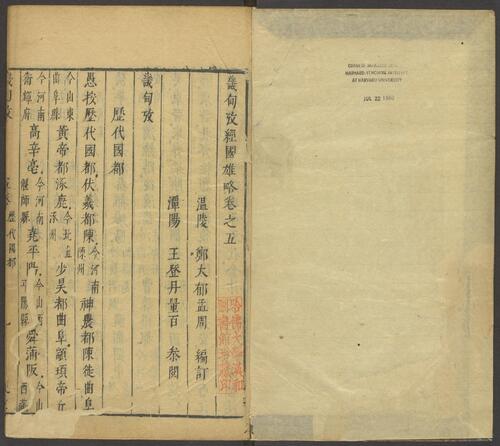 CHINESE-JAPANESE LIBRARY
HARVARD-YENCHING INSTITUTE
AT HARVARD UNIVERSITY
JUL 22 1980
畿甸攷經國雄略卷之五
溫陵 鄭大郁孟周 編訂
潭陽 王登丹量百 叅閱
哈佛大學漢和
圖書館珍藏印
畿甸攷
歷代國都
愚按歷代國都伏羲都陳今河南陳州神農都陳徙曲阜
今山東曲阜縣黃帝都涿鹿今北直涿州少昊都曲阜顓頊帝丘
今河南衛輝府高辛亳今河南偃師縣堯平陽今山西舜蒲阪今山西
畿甸攷
歷代國都